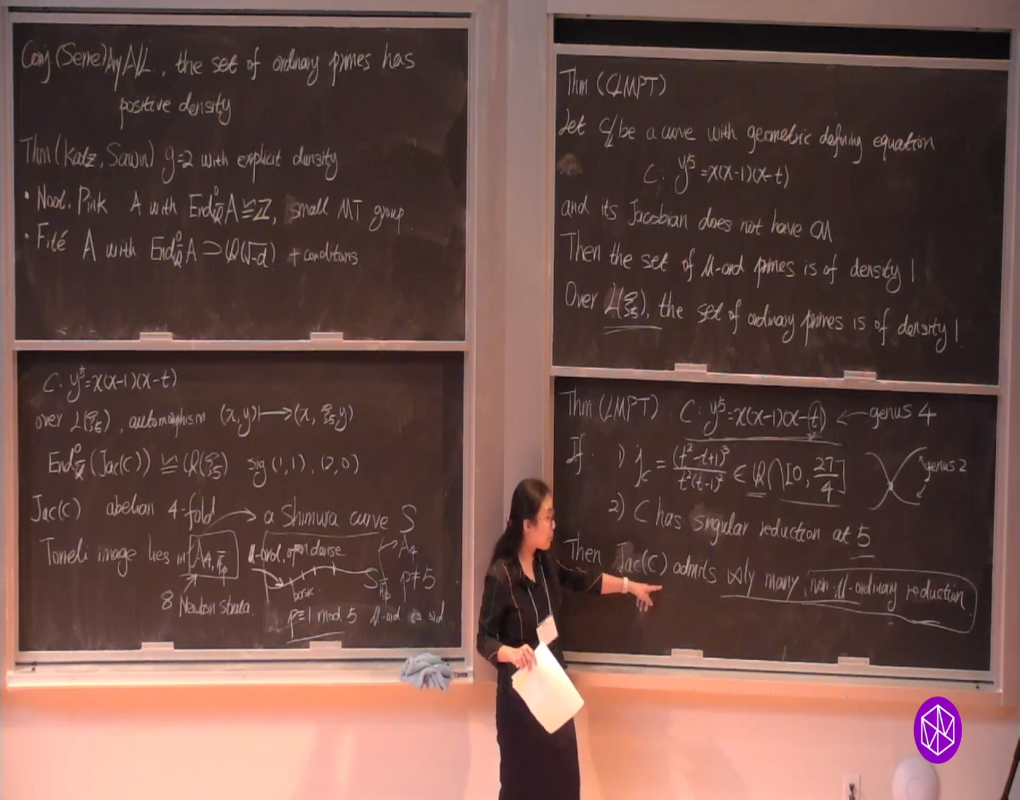 Conj (Serre) Any A/L, the set of ordinary primes has
positive density
Thm (Katz, Sawin) g=2 with explicit density
• Noot. Pink A with End⁰_Q̄ A ≅ Z, small MT group
• Fité A with End⁰_Q̄ A ⊃ Q(√-d) + conditions
C: y⁵=x(x-1)(x-t)
over L(ζ₅), automorphism (x,y) ↦ (x, ζ₅y)
End⁰_Q̄ (Jac(C)) ≅ Q(ζ₅) sig (1,1), (2,0)
Jac(C) abelian 4-fold → a Shimura curve S
Torelli image lies in A₄,F̄p μ-ord. open dense S_F̄p p≠5 A₄
basic
8 Newton strata p≡1 mod 5 μ-ord is ord
Thm (CLMPT)
Let C/L be a curve with geometric defining equation
C: y⁵=x(x-1)(x-t)
and its Jacobian does not have CM
Then the set of μ-ord primes is of density 1
Over L(ζ₅), the set of ordinary primes is of density 1.
Thm (LMPT). C: y⁵=x(x-1)(x-t) ← genus 4
If 1) j_C = (t²-t+1)³/t²(t-1)² ∈ Q ∩ [0, 27/4] genus 2
2) C has singular reduction at 5
Then Jac(C) admits ∞ly many non-μ-ordinary reduction.